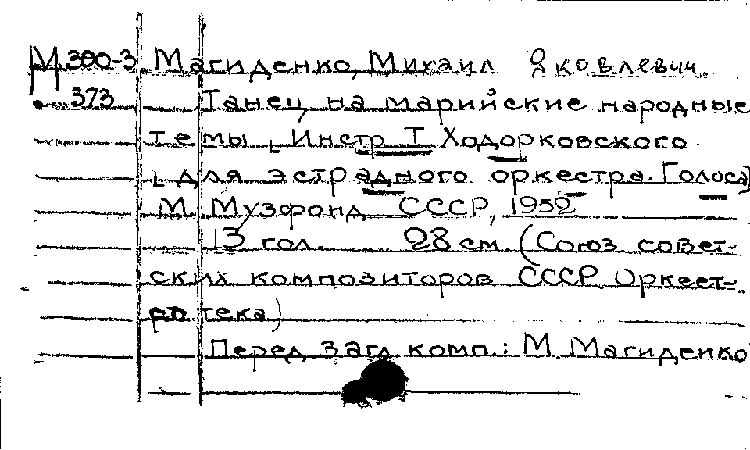 М 390-3 Магиденко, Михаил Яковлевич.
373 Танец на марийские народные
темы. Инстр. Т. Ходорковского
для эстрадного оркестра. Голоса]
М. Музфонд СССР, 1952
13 гол. 28 см. (Союз совет-
ских композиторов СССР. Оркест-
ротека)
Перед загл. комп.: М. Магиденко